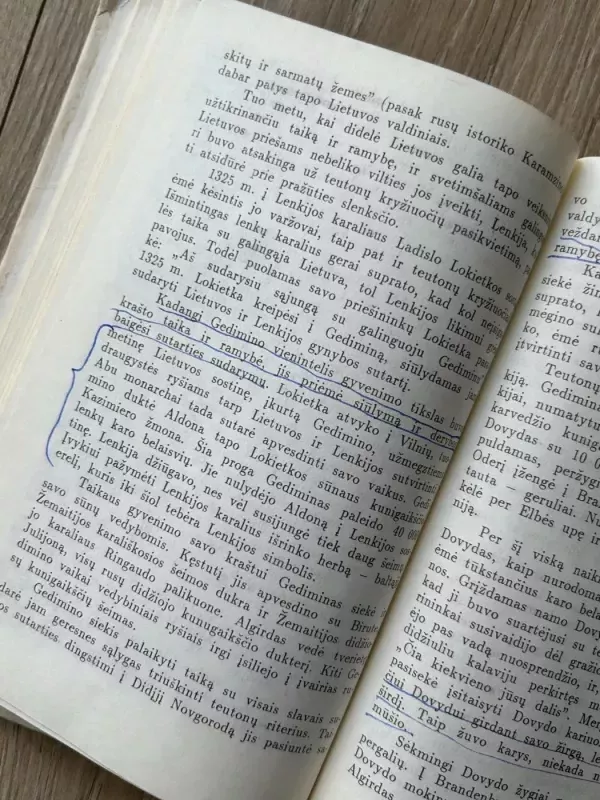 skitų ir sarmatų žemes" (pasak rusų istoriko Karamzino
dabar patys tapo Lietuvos valdiniais.
Tuo metu, kai didelė Lietuvos galia tapo veiksniu
užtikrinančiu taiką ir ramybę, ir svetimšaliams
Lietuvos priešams nebeliko vilties jos įveikti, Lenkija,
ri buvo atsakinga už teutonų kryžiuočių pasikvietimą,
ti atsidūrė prie pražūties slenksčio.
1325 m. į Lenkijos karaliaus Ladislo Lokietkos
ėmė kėsintis jo varžovai, taip pat ir teutonų kryžiuočiai
Išmintingas lenkų karalius gerai suprato, kad kol
lės taika su galingąja Lietuva, tol Lenkijos likimui
pavojus. Todėl puolamas savo priešininkų Lokietka
kė: „Aš sudarysiu sąjungą su galinguoju Gedimino
1325 m. Lokietka kreipėsi į Gediminą, siūlydamas jam
sudaryti Lietuvos ir Lenkijos gynybos sutartį.
Kadangi Gedimino vienintelis gyvenimo tikslas buvo
krašto taika ir ramybė, jis priėmė siūlymą ir derybos
baigėsi sutarties sudarymu. Lokietka atvyko į Vilnių,
metinę Lietuvos sostinę, įkurtą Gedimino, užmegzti
draugystės ryšiams tarp Lietuvos ir Lenkijos sutvirtinti
Abu monarchai tada sutarė apvesdinti savo vaikus. Gedi-
mino duktė Aldona tapo Lokietkos sūnaus kunigaikščio
Kazimiero žmona. Šia proga Gediminas paleido 40 000
lenkų karo belaisvių. Jie nulydėjo Aldoną į Lenkijos sos-
tinę. Lenkija džiūgavo, nes vėl susijungė tiek daug šeimų.
Įvykiui pažymėti Lenkijos karalius išrinko herbą – baltąjį
erelį, kuris iki šiol tebėra Lenkijos simbolis.
Taikaus gyvenimo savo kraštui Gediminas siekė ir
savo sūnų vedybomis. Kęstutį jis apvesdino su Birute,
Žemaitijos karališkosios šeimos dukra ir Žemaitijos didžio-
jo karaliaus Ringaudo palikuone. Algirdas vedė Tverietę
Julijoną, visų rusų didžiojo kunigaikščio dukterį. Kiti Ge-
dimino vaikai vedybiniais ryšiais irgi įsiliejo į įvairias ru-
sų kunigaikščių šeimas.
Gedimino siekis palaikyti taiką su visais slavais su-
darė jam geresnes sąlygas triuškinti teutonų riterius. Tai-
os sutarties dingstimi į Didįjį Novgorodą jis pasiuntė sa-
vo
valdy
veždam
ramybę
Ka
siekė žin
suprato,
mėgino sut
ko, ėmė r
įtvirtinti sav
Teutonų
kiją. Gedimi
kiai, numatyta
karvedžio kunigai
Dovydas su 10 0
puldamas, peržygi
Oderį įžengė į Bran
nauta – geruliai. Nu
kėlė per Elbės upę ir
niją.
Per šį visą naikin
Dovydas, kaip nuroda
ėmė tūkstančius karo bela
nos. Grįždamas namo Dovy
kad ji buvo suartėjusi su te
nininkai susivaidijo dėl gražio
ėjo pas vadą nuosprendžio, ir,
didžiuliu kalaviju perkirtęs m
„Čia kiekvieno jūsų dalis". Mer
pasisekė įsitaisyti Dovydo kariuo
čiui Dovydui girdant savo žirgą, lė
širdį. Taip žuvo karys, niekada n
mūšio.
Sėkmingi Dovydo žygiai
pergalių. Į Brandenb
Dovydo mokin
Algirdas